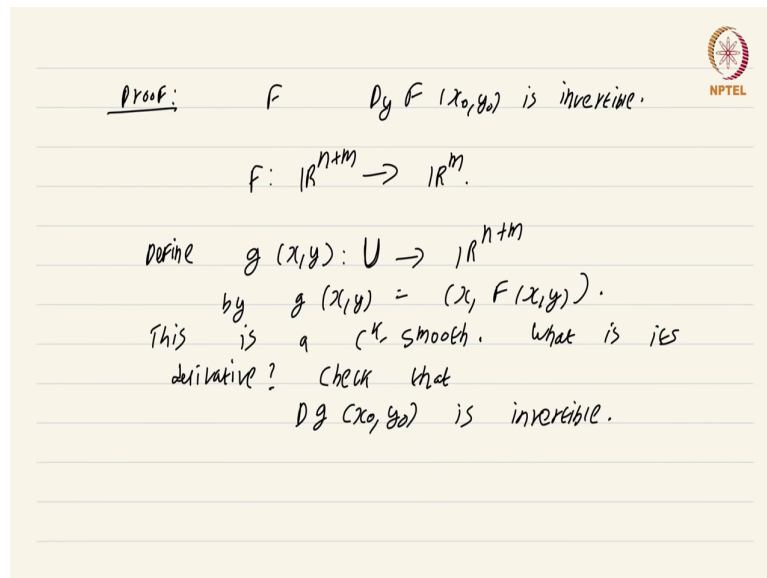 NPTEL
Proof: F Dy F (x₀,y₀) is invertible.
F: ℝⁿ⁺ᵐ → ℝᵐ.
Define g (x,y): U → ℝⁿ⁺ᵐ
by g (x,y) = (x, F(x,y)).
This is a Cᵏ smooth. What is its
derivative? Check that
Dg (x₀,y₀) is invertible.